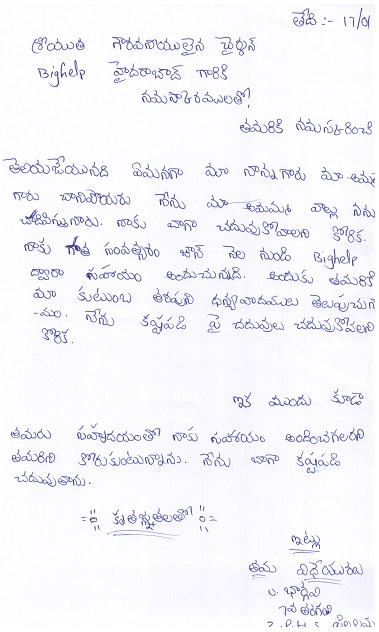 తేది :- 17/01
శ్రీయుత గౌరవనీయులైన చైర్మన్
Bighelp హైదరాబాద్ గారికి
నమస్కారములతో!
తమరికి నమస్కరించి
తెలియజేయునది ఏమనగా మా నాన్నగారు మా అమ్మ
గారు చానిపోయరు నేను మా అమమ్మ వాల్లు నను
చదివిస్తున్నారు. నాకు బాగా చదువుకోవాలని కోరిక.
నాకు గత సంవత్సరం జూన్ నెల నుండి Bighelp
ద్వారా సహాయం అందుచున్నది. అందుకు తమరికి
మా కుటుంబ తరఫున ధన్యవాదములు తెలుపుచున
-ము. నేను కష్టపడి పై చదువులు చదువుకోవలని
కోరిక.
ఇక ముందు కూడా
తమరు సహృదయంతో నాకు సహాయం అందించగలరని
తమరిని కోరుకుంటున్నాను. నేను బాగా కష్టపడి
చదువుతాను.
కృతజ్ఞతలతో
ఇట్లు
తమ విధేయురాలు
భార్గవి
7వ తరగతి